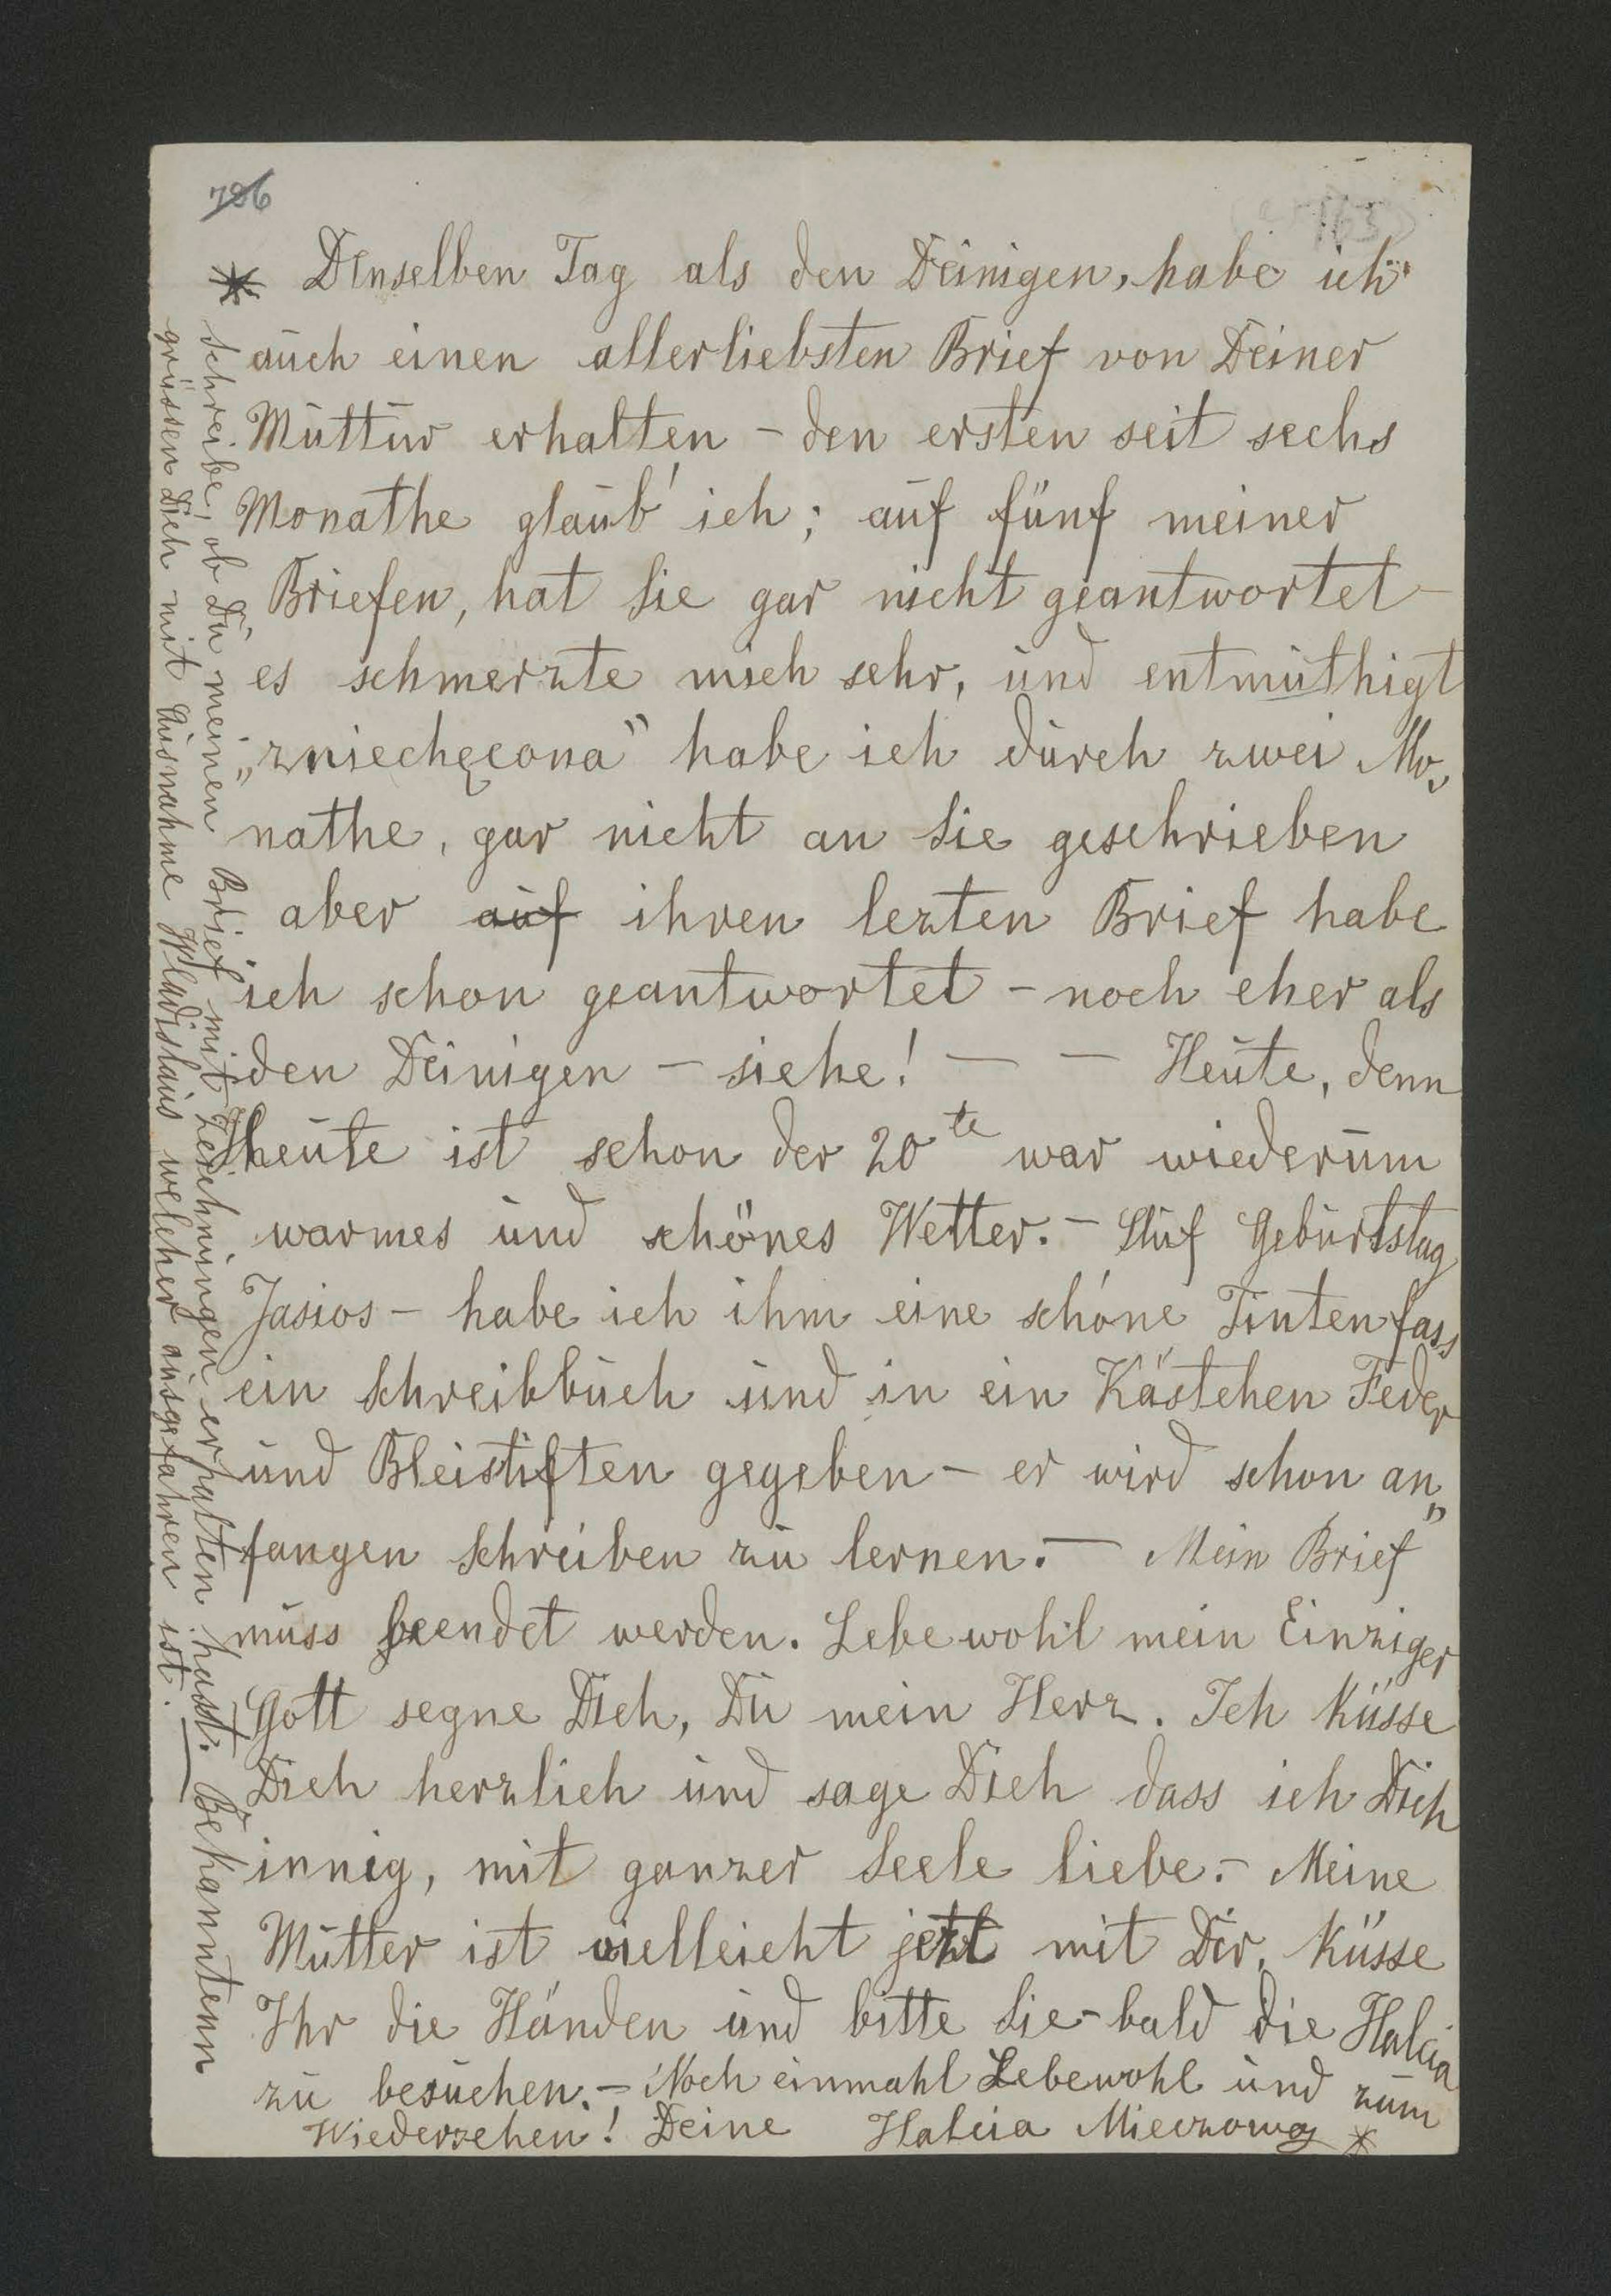 786
Denselben Tag als den Deinigen, habe ich
auch einen allerliebsten Brief von Deiner
Muttur erhalten - den ersten seit sechs
Monathe glaub' ich; auf fünf meiner
Briefen, hat Sie gar nicht geantwortet -
es schmerzte mich sehr, und entmuthigt
„zniechęcona" habe ich durch zwei Mo„
nathe, gar nicht an Sie geschrieben
aber auf ihren lezten Brief habe
ich schon geantwortet - noch eher als
den Deinigen - siehe! — — Heute, denn
heute ist schon der 20te war wiederum
warmes und schönes Wetter. - Auf Geburtstag
Jasios - habe ich ihm eine schöne Tintenfass
ein Schreibbuch und in ein Kästchen Feder
und Bleistiften gegeben - er wird schon an„
fangen schreiben zu lernen. — Mein Brief
muss beendet werden. Lebe wohl mein Einziger
Gott segne Dich, Du mein Herz. Ich küsse
Dich herzlich und sage Dich dass ich Dich
innig, mit ganzer Seele liebe. - Meine
Mutter ist vielleicht jetzt mit Dir, küsse
Ihr die Händen und bitte Sie - bald die Halcia
zu besuchen. - Noch einmahl Lebewohl und zum
Wiedersehen! Deine Halcia Mieczowa *
* schreibe, ob Du meinen Brief mit Zeichnungen erhalten hast. Bekanntenn
grüssen Dich mit Ausnahme Wladislaus welcher ausgefahren ist. —